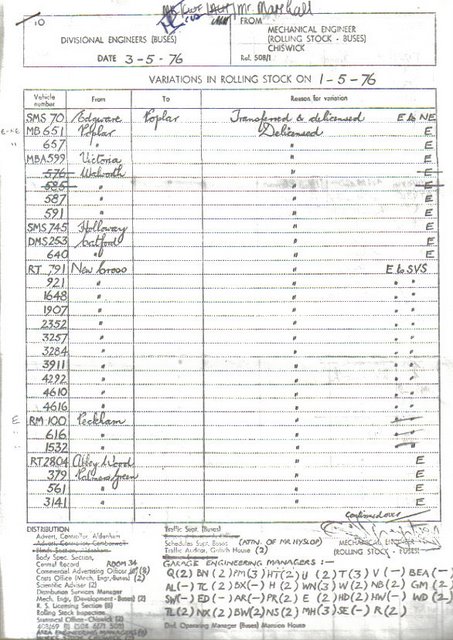 Mr Marshall
TO
DIVISIONAL ENGINEERS (BUSES)
DATE 3-5-76
FROM
MECHANICAL ENGINEER
(ROLLING STOCK - BUSES)
CHISWICK
Ref. 508/1
VARIATIONS IN ROLLING STOCK ON 1-5-76
Vehicle number From To Reason for variation
SMS 70 Edgware Poplar Transferred & delicensed E to NE
MB 651 Poplar Delicensed E
657 " " E
MBA 599 Victoria " E
576 Walworth " E
585 " " E
587 " " E
591 " " E
SMS 745 Holloway " E
DMS 253 Catford " E
640 " " E
RT 791 New Cross " E to SVS
921 " " " "
1648 " " " "
1907 " " " "
2352 " " " "
3257 " " " "
3284 " " " "
3911 " " " "
4292 " " " "
4610 " " " "
4616 " " " "
E RM 100 Peckham " " "
616 " " " "
1532 " " " "
RT 2804 Abbey Wood " E
379 Palmers Green " E
561 " " E
3141 " " E
continued over
MECHANICAL ENGINEER
(ROLLING STOCK - BUSES)
DISTRIBUTION
Advert. Controller, Aldenham
Body Spec. Section,
Central Record ROOM 34
Commercial Advertising Officer
Costs Office (Mech. Engr. Buses) (2)
Scientific Adviser (2)
Distribution Services Manager
Mech. Engr. (Development - Buses) (2)
R. S. Licensing Section (8)
Rolling Stock Inspection
Statistical Office - Chiswick (2)
Traffic Supt. (Buses)
Schedules Supt. Buses (ATTN. OF MR HYSLOP)
Traffic Auditor, Griffith House (2)
GARAGE ENGINEERING MANAGERS :-
Q(2) BN(2) PM(3) HT(2) U(2) T(3) V(-) BEA(-)
AL(-) TL(2) BX(-) H(2) WN(3) W(2) NB(2) GM(2)
SW(-) ED(-) AR(-) PR(2) E(2) HD(2) HW(-) WD(2)
TL(2) NX(2) BW(2) NS(2) MH(3) SE(-) R(2)
Divl. Operating Manager (Buses) Mansion House